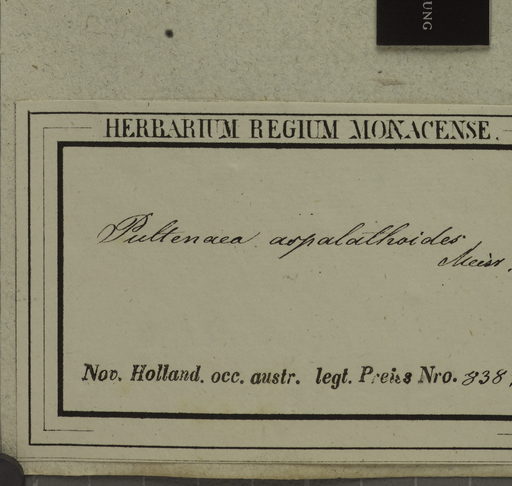 UNG
HERBARIUM REGIUM MONACENSE.
Pultenaea aspalathoides
Meisr.
Nov. Holland. occ. austr. legt. Preiss Nro. 838,